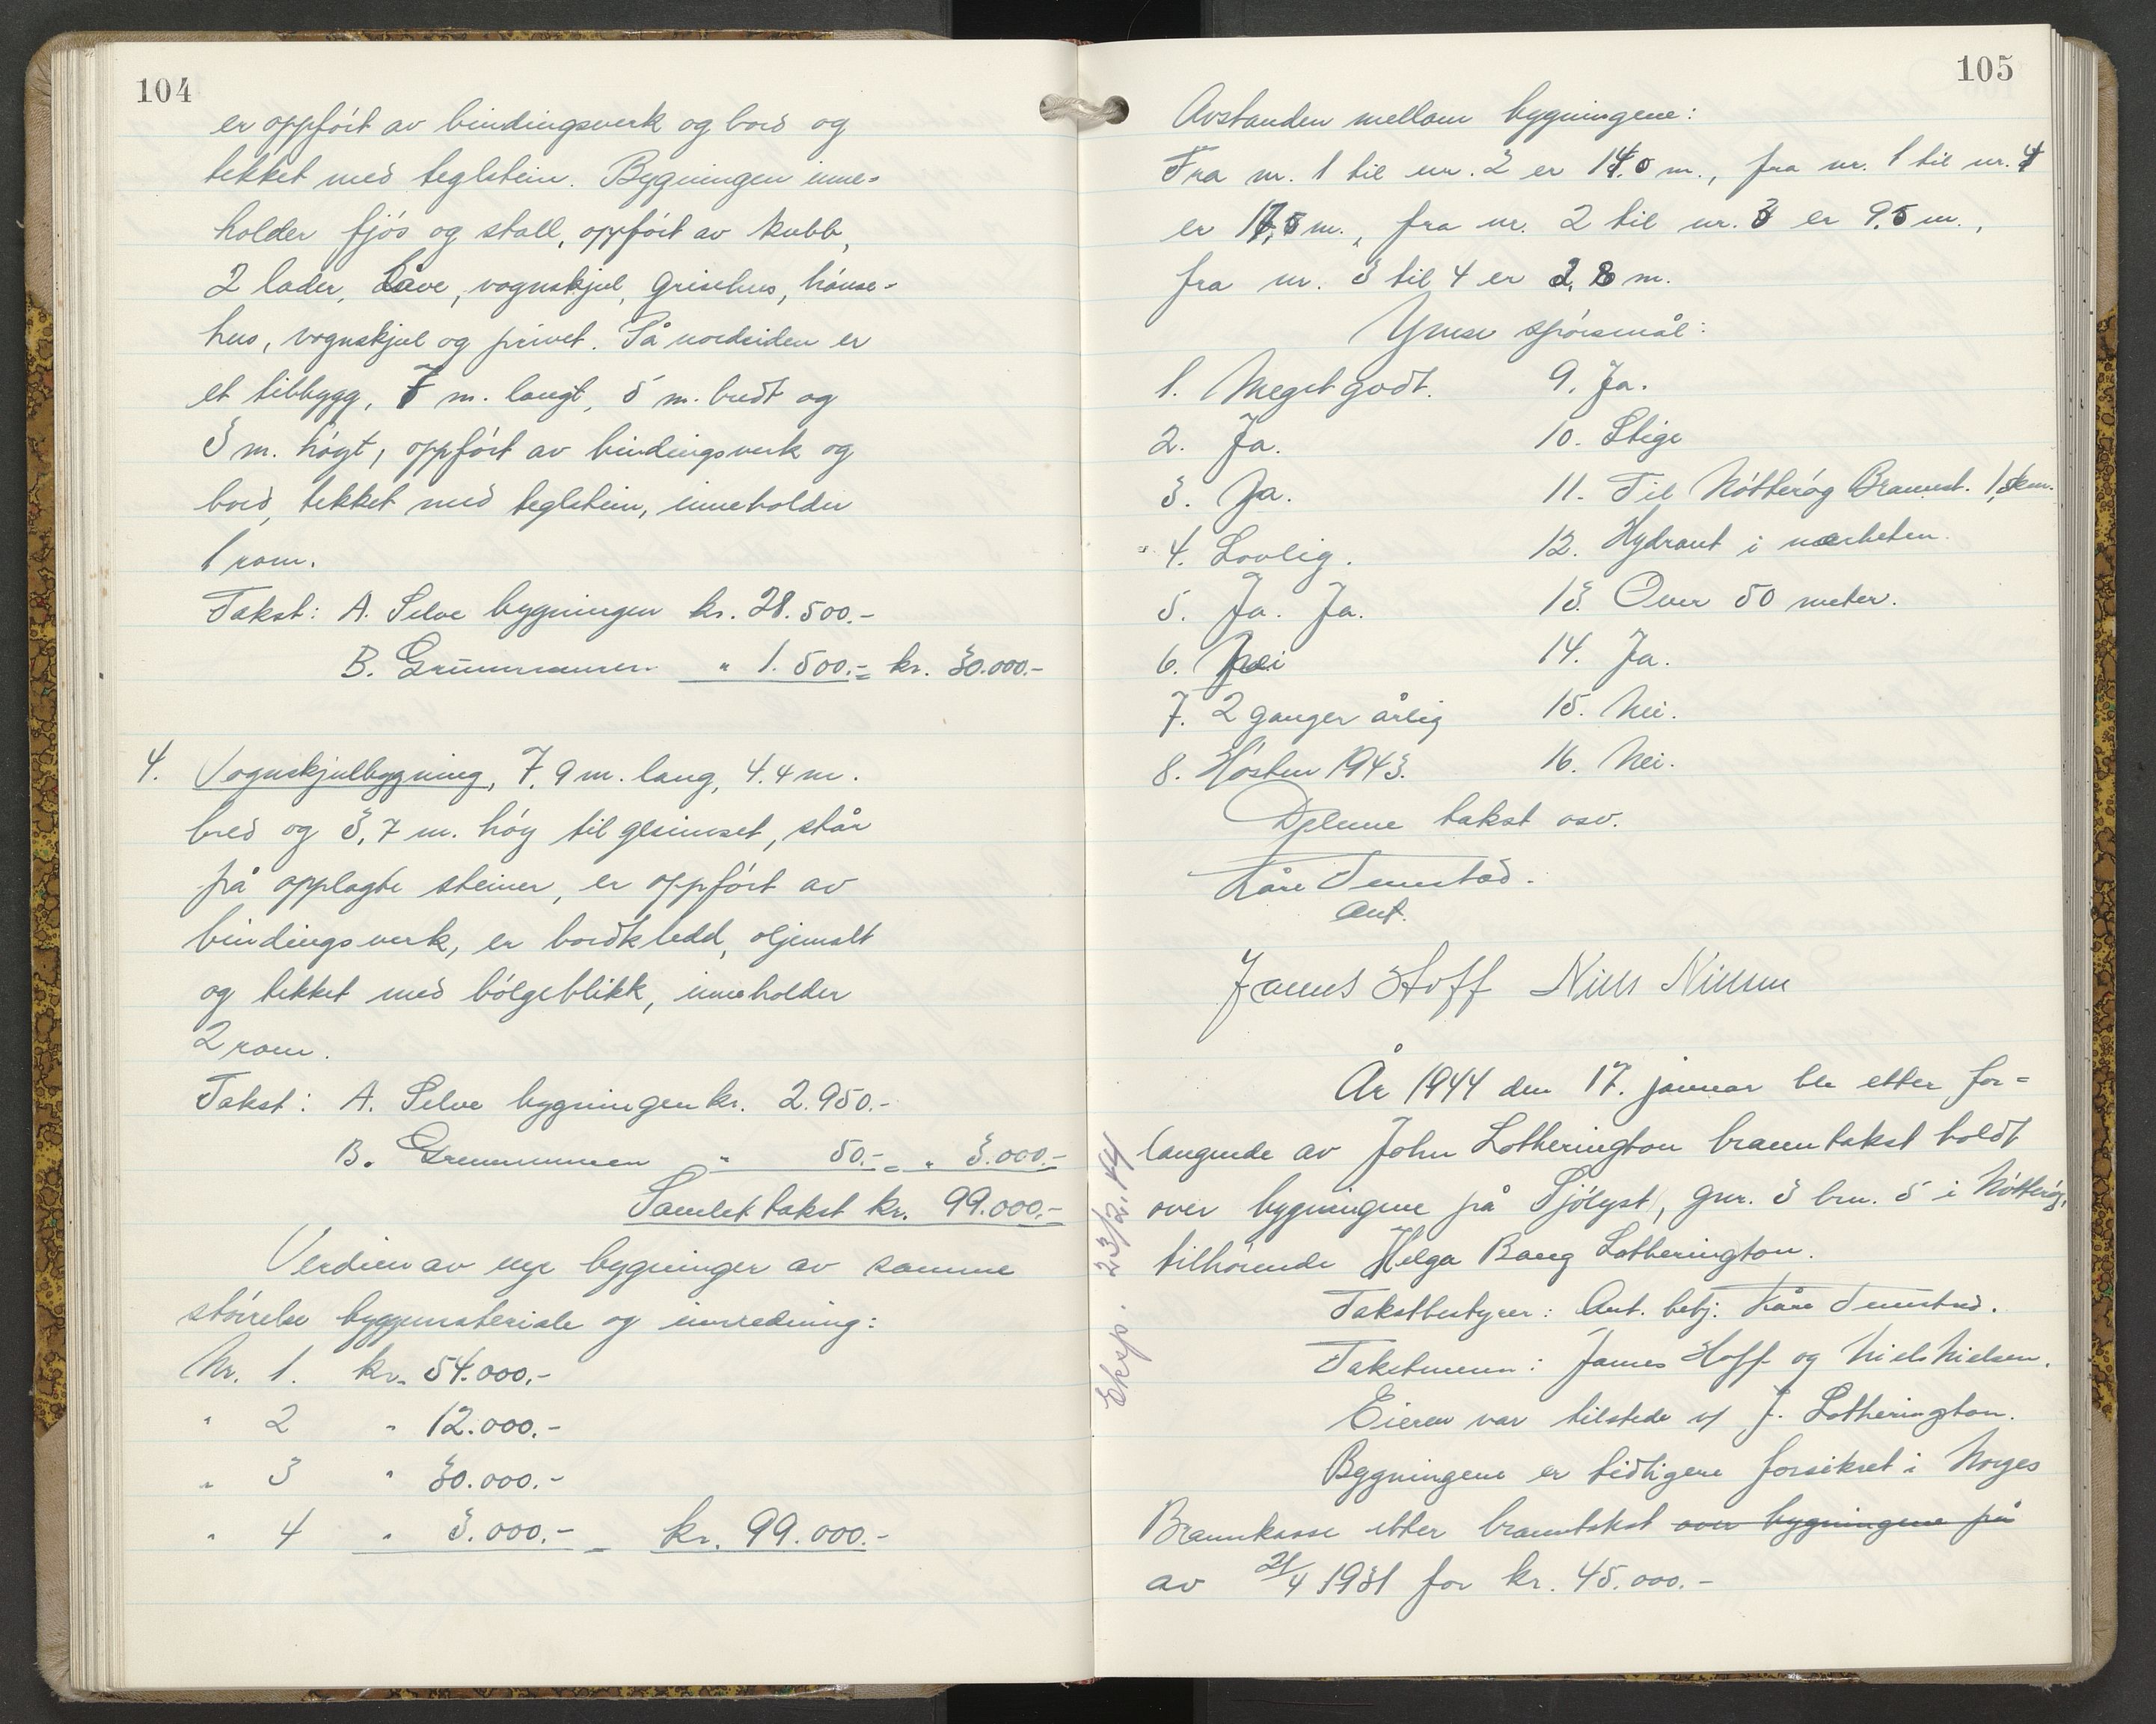 104
er oppført av bindingsverk og bord og
tekket med teglstein. Bygningen inne=
holder fjøs og stall, oppført av kubb,
2 lader, låve, vognskjul, grisehus, hønse=
hus, vognskjul og privet. På nordsiden er
et tilbygg, 7 m. langt, 5 m. bredt og
3 m. høgt, oppført av bindingsverk og
bord, tekket med teglstein, inneholder
1 rom.
Takst: A. Selve bygningen kr. 28.500.-
B. Grunnmuren " 1.500.- = kr. 30.000.-
4. Vognskjulbygning, 7.9 m. lang, 4.4 m.
bred og 3,7 m. høg til gesimset, står
på opplagte steiner, er oppført av
bindingsverk, er bordkledd, oljemalt
og tekket med bølgeblikk, inneholder
2 rom.
Takst: A. Selve bygningen kr. 2.950.-
B. Grunnmuren " 50.- = " 3.000.-
Samlet takst kr. 99.000.-
Verdien av nye bygninger av samme
størrelse byggemateriale og innredning:
Nr. 1. kr. 54.000.-
" 2 " 12.000.-
" 3 " 30.000.-
" 4 " 3.000.- = kr. 99.000.-
105
Avstanden mellom bygningene:
Fra nr. 1 til nr. 2 er 14.0 m., fra nr. 1 til nr. 4
er 17,5 m., fra nr. 2 til nr. 3 er 9.5 m.,
fra nr. 3 til 4 er 2,8 m.
Ymse spørsmål:
1. Meget godt. 9. Ja.
2. Ja. 10. Stige
3. Ja. 11. Til Nøtterøy Brannst. km.
4. Lovlig. 12. Hydrant i nærheten.
5. Ja. Ja. 13. Over 50 meter.
6. Nei 14. Ja.
7. 2 ganger årlig 15. Nei.
8. Høsten 1943. 16. Nei.
Denne takst osv.
Kåre Tennstad.
Ant.
James Hoff Niels Nielsen
År 1944 den 17. januar ble etter for=
langende av John Lotherington branntakst holdt
over bygningene på Sjølyst, gnr. 3 bnr. 5 i Nøtterøy,
tilhørende Helga Bang Lotherington.
Takstbestyrer: Ant. betj. Kåre Tennstad.
Takstmenn: James Hoff og Niels Nielsen.
Eieren var tilstede v/ J. Lotherington.
Bygningene er tidligere forsikret i Norges
Brannkasse etter branntakst over bygningene på
av 21/4 1931 for kr. 45.000.-
Eksp. 23/2.44